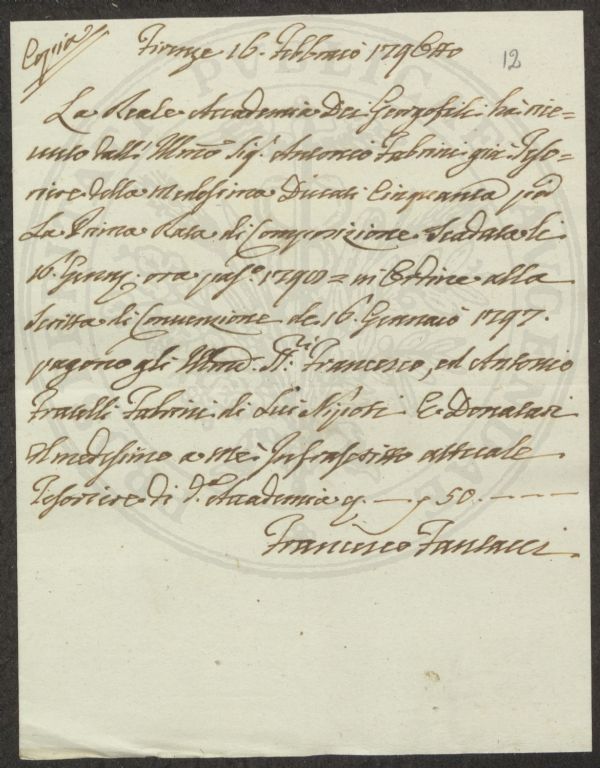 Copia
Firenze 16. Febbraio 1798 Otto
12
La Reale Accademia Dei Georgofili ha rice=
vuto dall' Sig.r Antonio Fabrini già Teso=
riere della medesima Ducati Cinquanta p
La Prima Rata di Composizione Scaduta li
16. Genn. ora pas.o 1798 = in Ordine alla
Scritta di Convenzione de 16 Gennaio 1797.
pagorno gli Francesco, ed Antonio
Fratelli Fabrini di Lui Nipoti E Donatari
Il medesimo a me Infrascritto attuale
Tesoriere di d.a Accademia 50. - - -
Francesco Fantacci